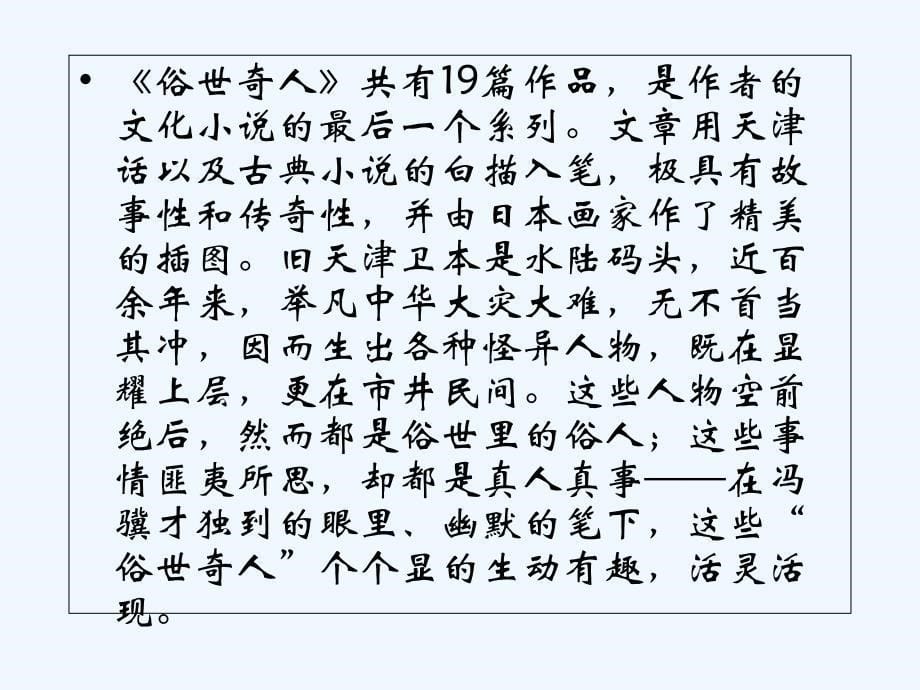 • 《俗世奇人》共有19篇作品，是作者的
文化小说的最后一个系列。文章用天津
话以及古典小说的白描入笔，极具有故
事性和传奇性，并由日本画家作了精美
的插图。旧天津卫本是水陆码头，近百
余年来，举凡中华大灾大难，无不首当
其冲，因而生出各种怪异人物，既在显
耀上层，更在市井民间。这些人物空前
绝后，然而都是俗世里的俗人；这些事
情匪夷所思，却都是真人真事——在冯
骥才独到的眼里、幽默的笔下，这些“
俗世奇人”个个显的生动有趣，活灵活
现。